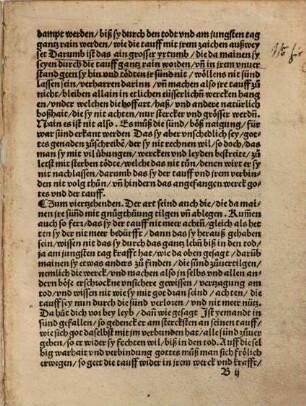 dampt werden/ biß sy durch den todt vnd am jungsten tag
gantz rain werden/ wie die tauff mit jrem zaichen außwey
set Darumb ist das ain grosser yrtumb/ die da mainen sy
seyen durch die tauff gantz rain worden/ vñ in jrem vnuer
stand geen sy hin vnd tödten jr sünd nit/ wöllens nit sünd
lassen sein/ verharren darinn/ vñ machen also jre tauff zů
nicht/ bleiben allain in etlichen eüsserlichñ wercken hang
en/ vnder welchen die hoffart/ haß/ vnd andere natürlich
boßhait/ die sy nit achten/ nur stercker vnd grösser werdñ.
Nain es ist nit also. Es můß die sünd/ böß naigung/ für
war sünd erkant werden. Das sy aber vnschedlich sey/ got
tes genaden zůschreibẽ/ der sy nit rechnen wil/ so doch/ das
man sy mit vil übungen/ wercken vnd leyden bestreite/ zů
letst mit sterben tödte/ welche das nit tůn/ denen wirt er sy
nit nachlassen/ darumb das sy der tauff vnd jrem verbin/
den nit volg thůn/ vñ hindern das angefangen werck got
tes vnd der tauff.
Zum vierzehenden. Der art seind auch die/ die da mai
nen jre sünd mit gnůgthůung tilgen vñ ablegen. Kumẽn
auch so fern/ das sy der tauff nit meer achtẽ/ gleich als het
ten sy der nit meer bedürfft/ dann das sy heraus gehaben
sein/ wissen nit das sy durch das gantz lebñ biß in den tod/
ja am jungsten tag krafft hat/ wie da oben gesagt/ darũb
mainen sy etwas anders zů finden/ die sünd zůuertilgen/
nemlich die werck/ vnd machen also jn selbs vnd allen an
dern böse erschrockne vnsichere gewissen/ verzagung am
tod/ vnd wissen nit wie sy mit got dran seind/ achten/ die
tauff sey nun durch die sünd verloren/ vnd nit meer nütz.
Da hüt dich vor bey leyb/ dañ wie gesagt/ Ist yemandt in
sünd gefallen/ so gedenck er am stercksten an seinen tauff/
wie sich got daselbst mit im verbunden hat/ alle sünd zůuer
geben/ so er wider sy fechten wil/ biß in den tod. Auff die sel
big warhait vnd verbindung gottes můß man sich frölich
erwegen/ so geet die tauff wider in jrem werck vnd krafft/
B ij